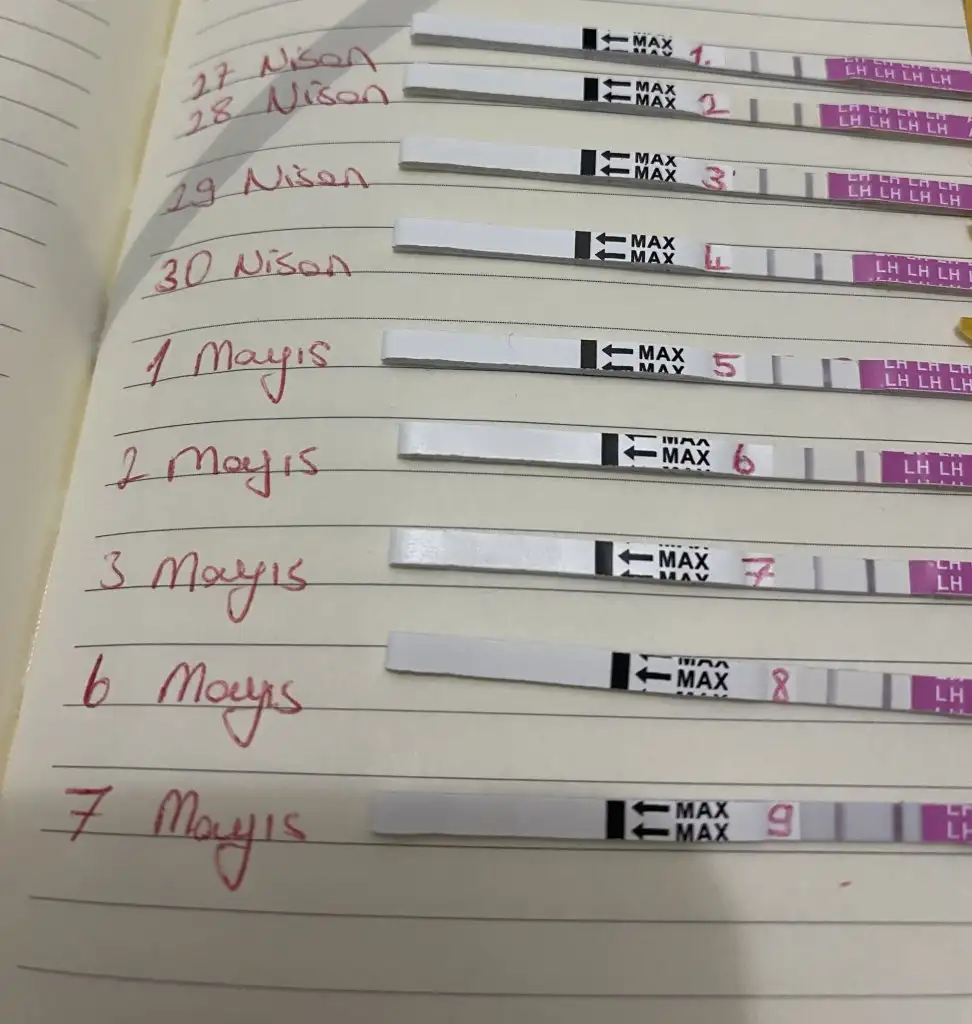 27 Nisan
MAX
MAX
1.
LH LH LH LH
LH LH LH LH
28 Nisan
MAX
MAX
2
LH LH LH LH
LH LH LH LH
29 Nisan
MAX
MAX
3
LH LH LH LH
LH LH LH LH
30 Nisan
MAX
MAX
4
LH LH LH
1 Mayıs
MAX
MAX
5
LH LH LH
LH LH LH
2 Mayıs
MAX
MAX
6
LH LH
3 Mayıs
MAX
MAX
7
LH
LH
6 Mayıs
MAX
MAX
8
LH
7 Mayıs
MAX
MAX
9
LH
LH